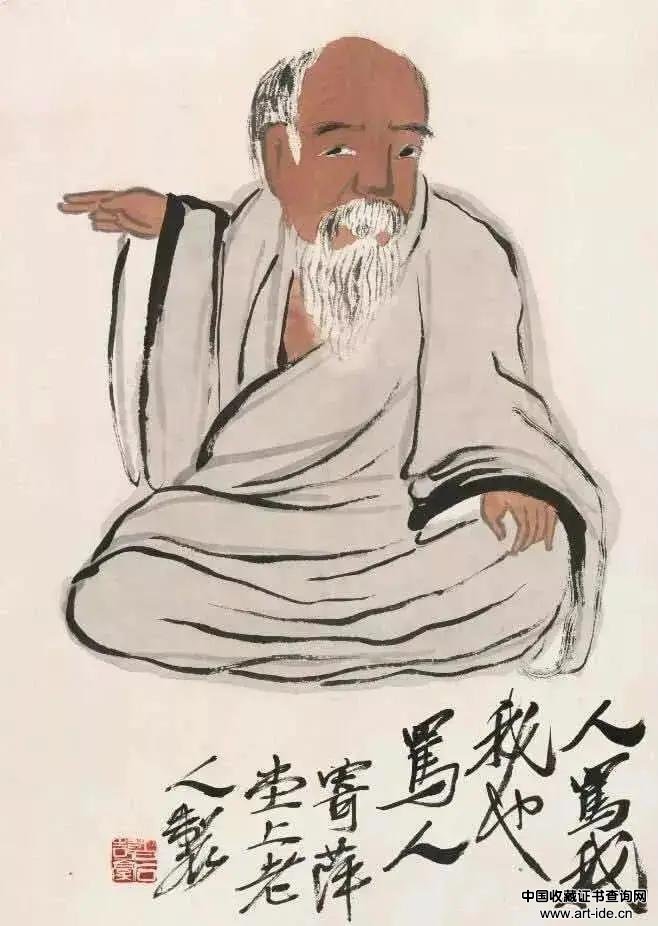 人罵我
我也
罵人
寄萍
堂上老
人製
中国收藏证书查询网
www.art-ide.cn